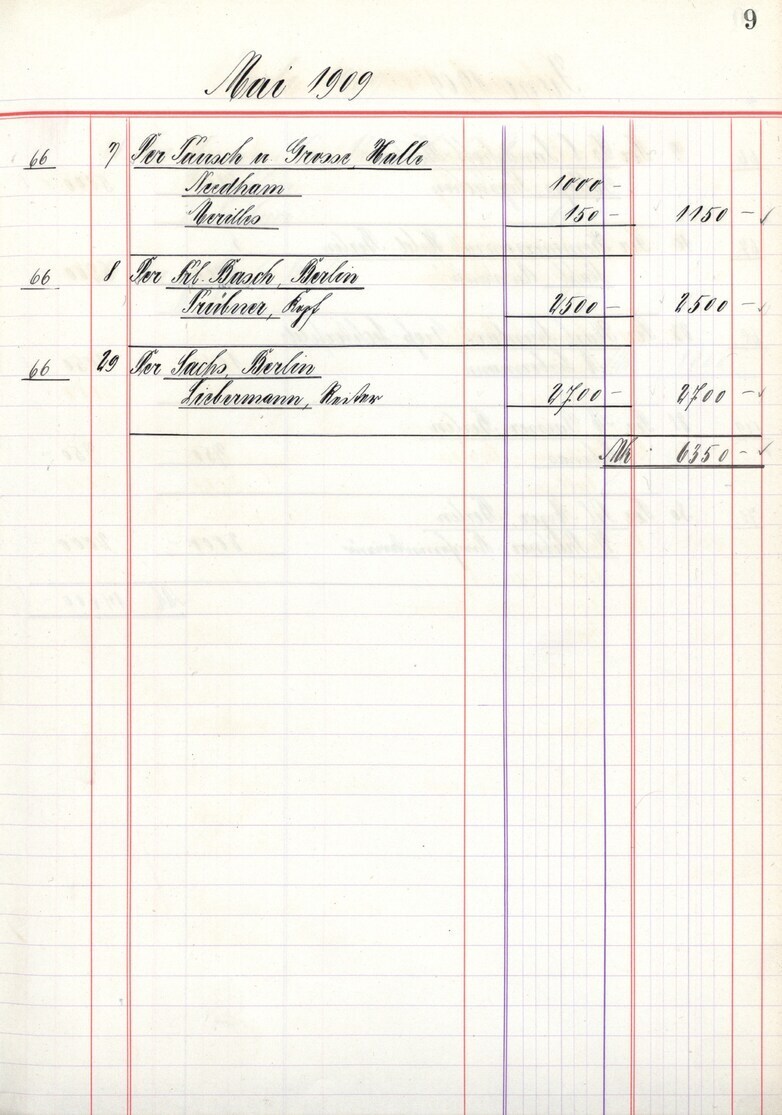 9
Mai 1909
66 7 Per Tausch u. Grosse, Halle
Needham 1000 -
150 - 1150 -
66 8 Per Frl. Basch, Berlin
Trübner, Kopf 2500 - 2500 -
66 29 Per Sachs, Berlin
Liebermann, Reiter 2700 - 2700 -
Mk 6350 -